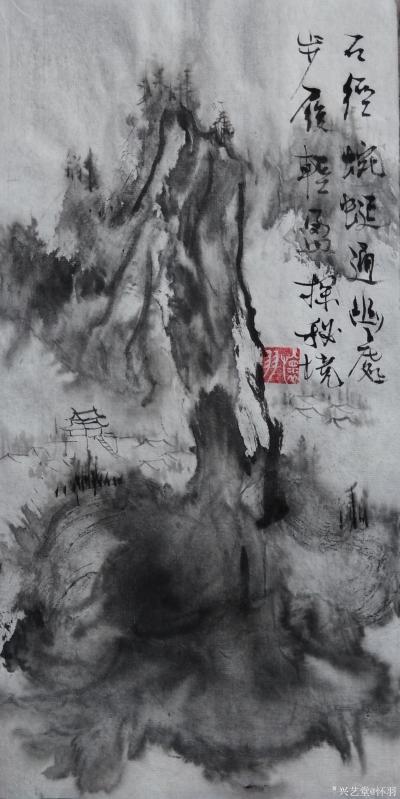 石径蜿蜒通幽处
步履轻盈探秘境
懷羽
兴艺堂@怀羽